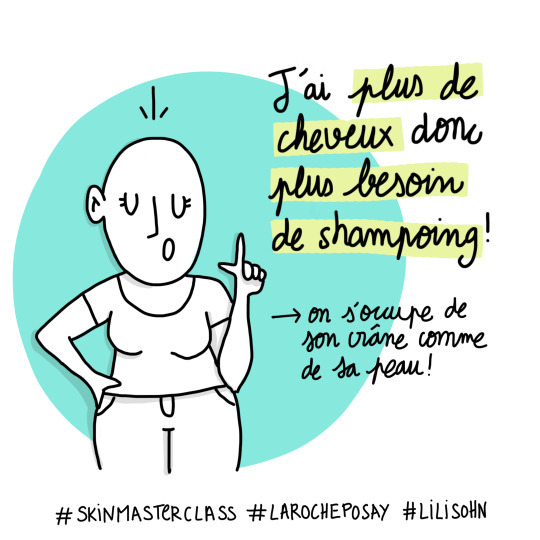 J'ai plus de
cheveux donc
plus besoin
de shampoing!
→ on s'occupe de
son crâne comme
de sa peau!
#SKINMASTERCLASS #LAROCHEPOSAY #LILISOHN